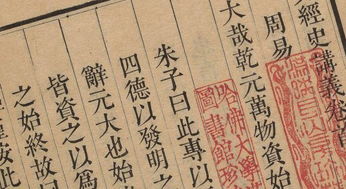 經史講義卷首
周易
大哉乾元萬物資始
朱子曰此專以
四德以發明之
辭元大也始
皆資之以為
之始終故曰
按此
哈佛大學
圖書館珍